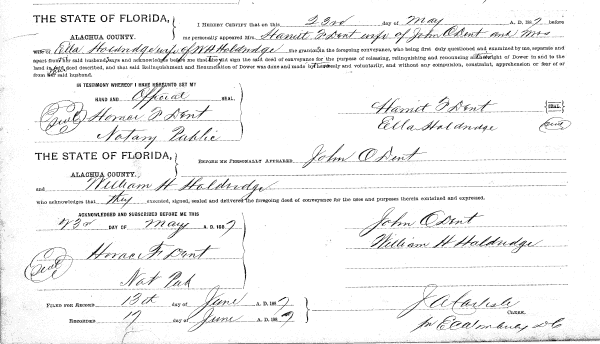 THE STATE OF FLORIDA,
ALACHUA COUNTY.
I HEREBY CERTIFY that on this 23rd day of May A. D. 1887 before
me personally appeared Mrs Harriet F Dent wife of John O Dent and Mrs
Ella Holdridge wife of W H Holdridge the grantors in the foregoing conveyance, who being first duly questioned and examined by me, separate and
apart from her said husband, says and acknowledges before me that she did sign the said deed of conveyance for the purpose of releasing, relinquishing and renouncing all her right of Dower in and to the
land in deed described, and that said Relinquishment and Renunciation of Dower was done and made by freely and voluntarily, and without any compulsion, constraint, apprehension or fear of or
from her said husband.
IN TESTIMONY WHEREOF I HAVE HEREUNTO SET MY
HAND AND Official SEAL.
Seal Horace F Dent
Notary Public
Harriet F Dent SEAL.
Ella Holdridge Seal
THE STATE OF FLORIDA,
ALACHUA COUNTY.
BEFORE ME PERSONALLY APPEARED John O Dent
and William H Holdridge
who acknowledges that they executed, signed, sealed and delivered the foregoing deed of conveyance for the uses and purposes therein contained and expressed.
ACKNOWLEDGED AND SUBSCRIBED BEFORE ME THIS
23d DAY OF May A. D. 1887
Seal Horace F Dent
Not Pub
John O Dent
William H Holdridge
FILED FOR RECORD 13th day of June A. D. 1887
RECORDED 17 day of June A. D. 1887
J A Carlisle
CLERK.
DC